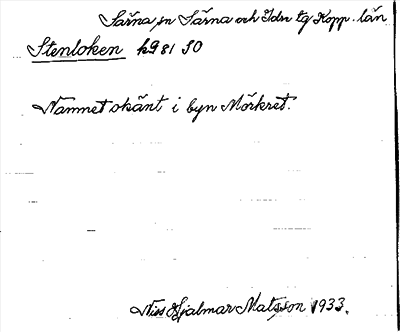 Särna sn Särna och Idre tg Kopp. län
Stenloken h9 81 S0
Namnet okänt i byn Mörkret.
Niss Hjalmar Matsson 1933.